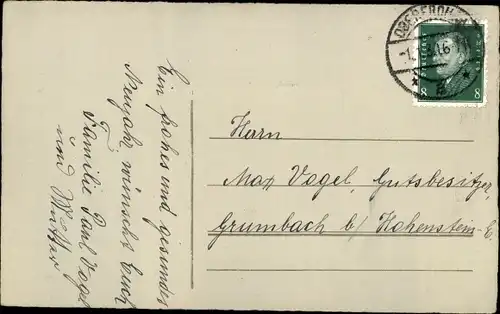 Ein frohes und gesundes
Neujahr wünscht Euch
Familie Paul Vogel
und Mutter
OBERFROHNA
8 8
Herrn
Max Vogel, Gutsbesitzer,
Grumbach b/ Hohenstein-E.